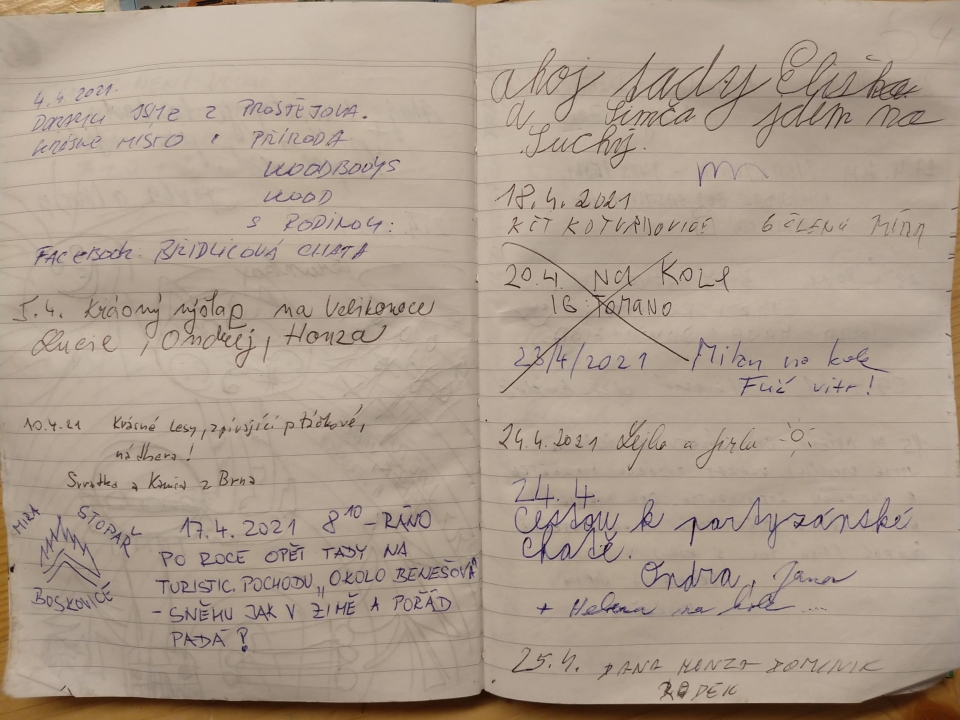 4.4.2021.
DORAZILI JSME Z PROSTĚJOVA.
KRÁSNÉ MÍSTO I PŘÍRODA
WOODBODYS
WOOD
S RODINOU:
FACEBOOK: BŘIDLICOVÁ CHATA
5.4. Krásný výšlap na Velikonoce
Lucie, Ondřej, Honza
10.4.21 Krásné lesy, zpívající ptáčkové,
nádhera!
Svratka a Kamča z Brna
MÍRA STOPAŘ
BOSKOVICE
17.4.2021 8¹⁰ - RÁNO
PO ROCE OPĚT TADY NA
TURISTIC. POCHODU „OKOLO BENEŠOVA"
- SNĚHU JAK V ZIMĚ A POŘÁD
PADÁ!
ahoj tady Eliška
a Simča jdem na
Suchý.
18.4.2021
KČT KOTVRDOVICE 6 ČLENŮ MÍRA
20.4. NA KOLE
IB TOMANO
23/4/2021 Milan na kole
Fučí vítr!
24.4.2021 Lejla a Jirka
24.4.
Cestou k partyzánské
chatě.
Ondra, Jana
+ Helena na kole ...
25.4. DANA HONZA DOMINIK
RADEK